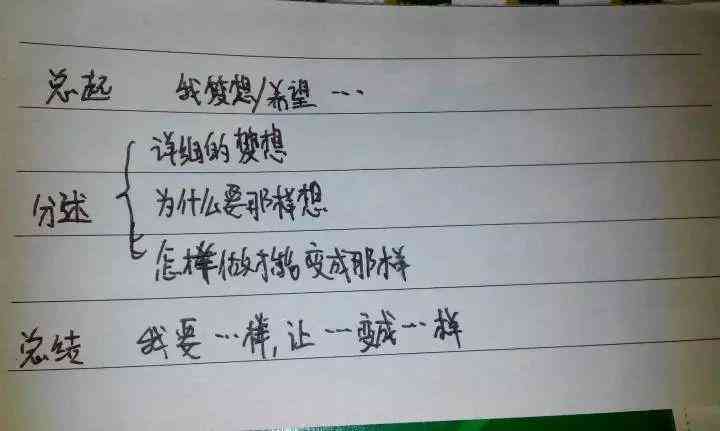 总起 我梦想/希望…
详细的梦想
分述 为什么要那样想
怎样做才能变成那样
总结 我要…样,让…变成…样